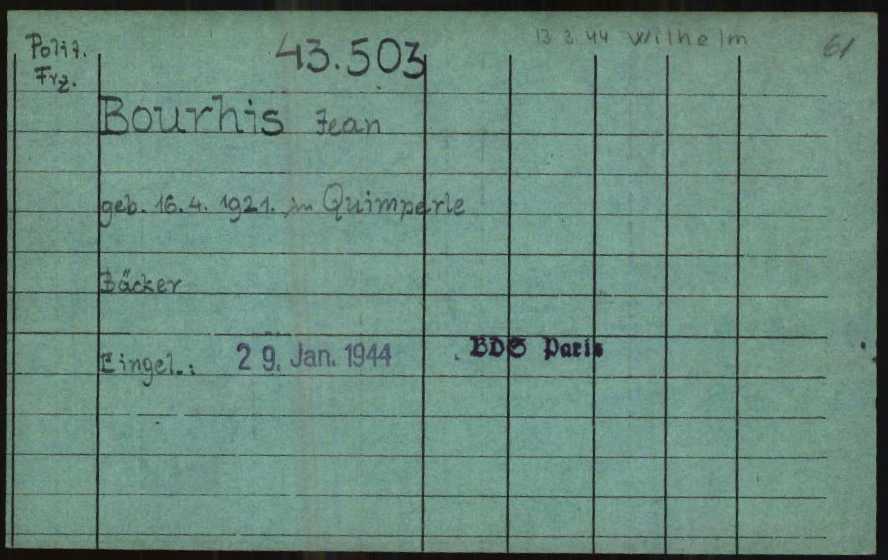 Polit.
Frz.
43.503
13 3. 44 Wilhelm
61
Bourhis Jean
geb. 16.4. 1921. in Quimperle
Bäcker
Eingel.: 29. Jan. 1944 BDS Paris